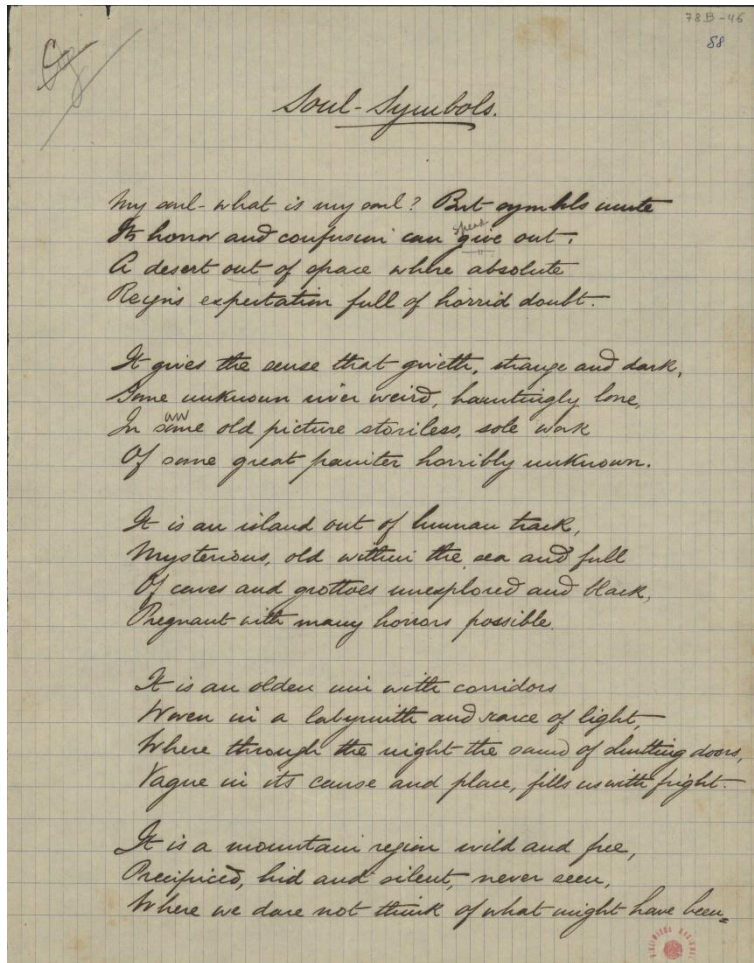 78B-46
58
Soul-Symbols.
My soul - what is my soul? But symbols mute
Its horror and confusion can give out:
speak
A desert out of space where absolute
Reigns expectation full of horrid doubt.
It gives the sense that giveth, strange and dark,
Some unknown river weird, hauntingly lone,
an
In some old picture storiless, sole work
Of some great painter horribly unknown.
It is an island out of human track,
Mysterious, old within the sea and full
Of caves and grottoes unexplored and black,
Pregnant with many horrors possible.
It is an olden inn with corridors
Woven in a labyrinth and scarce of light,
Where through the night the sound of shutting doors,
Vague in its cause and place, fills us with fright.
It is a mountain region wild and free,
Precipiced, hid and silent, never seen,
Where we dare not think of what might have been